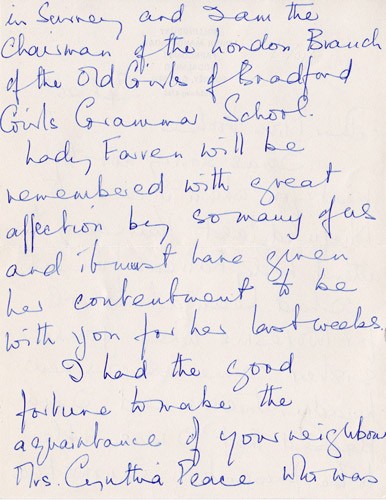 in Surrey and I am the
Chairman of the London Branch
of the Old Girls of Bradford
Girls Grammar School.
Lady Farren will be
remembered with great
affection by so many of us
and it must have given
her contentment to be
with you for her last weeks.
I had the good
fortune to make the
aquaintance of your neighbour
Mrs. Cynthia Peace who was